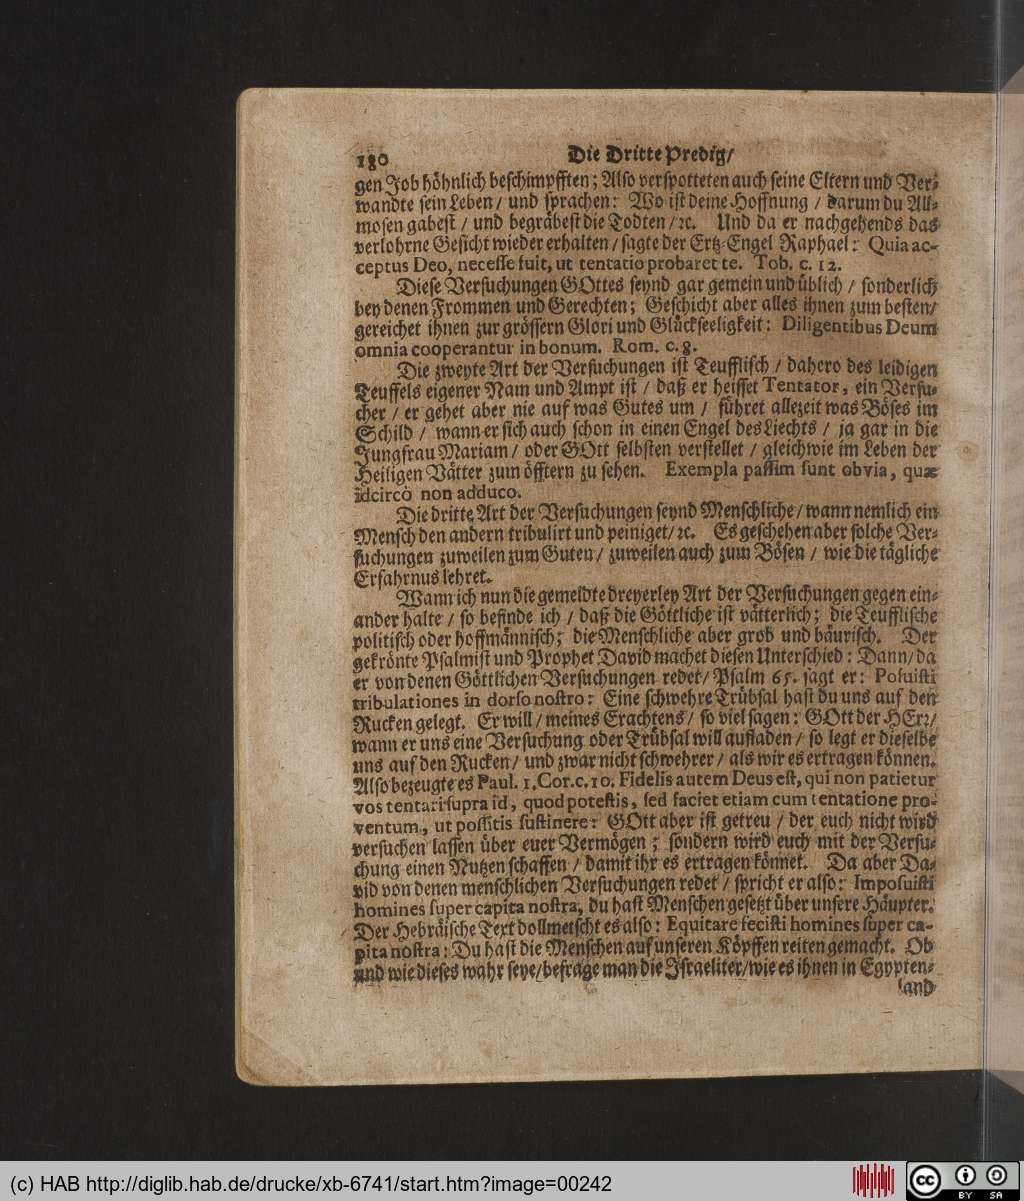 180 Die Dritte Predig/
gen Job höhnlich beschimpfften; Also verspotteten auch seine Eltern und Ver-
wandte sein Leben/ und sprachen: Wo ist deine Hoffnung / darum du All-
mosen gabest / und begrabest die Todten / ꝛc. Und da er nachgehends das
verlohrne Gesicht wieder erhalten / sagte der Ertz-Engel Raphael: Quia ac-
ceptus Deo, necesse fuit, ut tentatio probaret te. Tob. c. 12.
Diese Versuchungen GOttes seynd gar gemein und üblich / sonderlich
bey denen Frommen und Gerechten; Geschicht aber alles ihnen zum besten/
gereichet ihnen zur grössern Glori und Glückseeligkeit: Diligentibus Deum
omnia cooperantur in bonum. Rom. c. 8.
Die zweyte Art der Versuchungen ist Teufflisch / dahero des leidigen
Teuffels eigener Nam und Ampt ist / daß er heisset Tentator, ein Versu-
cher / er gehet aber nie auf was Gutes um / führet allezeit was Böses im
Schild / wann er sich auch schon in einen Engel des Liechts / ja gar in die
Jungfrau Mariam / oder GOtt selbsten verstellet / gleichwie im Leben der
Heiligen Vätter zum öfftern zu sehen. Exempla passim sunt obvia, quæ
idcircò non adduco.
Die dritte Art der Versuchungen seynd Menschliche / wann nemlich ein
Mensch den andern tribulirt und peiniget / ꝛc. Es geschehen aber solche Ver-
suchungen zuweilen zum Guten / zuweilen auch zum Bösen / wie die tägliche
Erfahrnus lehret.
Wann ich nun die gemeldte dreyerley Art der Versuchungen gegen ein-
ander halte / so befinde ich / daß die Göttliche ist vätterlich; die Teufflische
politisch oder hoffmännisch; die Menschliche aber grob und bäurisch. Der
gekrönte Psalmist und Prophet David machet diesen Unterschied: Dann / da
er von denen Göttlichen Versuchungen redet / Psalm 65. sagt er: Posuisti
tribulationes in dorso nostro: Eine schwehre Trübsal hast du uns auf den
Rucken gelegt. Er will / meines Erachtens / so viel sagen: GOtt der HErr/
wann er uns eine Versuchung oder Trübsal will aufladen / so legt er dieselbe
uns auf den Rucken / und zwar nicht schwehrer / als wir es ertragen können.
Also bezeugte es Paul. 1. Cor. c. 10. Fidelis autem Deus est, qui non patietur
vos tentari supra id, quod potestis, sed faciet etiam cum tentatione pro-
ventum, ut possitis sustinere: GOtt aber ist getreu / der euch nicht wird
versuchen lassen über euer Vermögen; sondern wird euch mit der Versu-
chung einen Nutzen schaffen / damit ihr es ertragen könnet. Da aber Da-
vid von denen menschlichen Versuchungen redet / spricht er also: Imposuisti
homines super capita nostra, du hast Menschen gesetzt über unsere Häupter.
Der Hebräische Text dollmetscht es also: Equitare fecisti homines super ca-
pita nostra: Du hast die Menschen auf unseren Köpffen reiten gemacht. Ob
und wie dieses wahr seye / befrage man die Israeliter / wie es ihnen in Egypten-
land
(c) HAB http://diglib.hab.de/drucke/xb-6741/start.htm?image=00242
cc BY SA